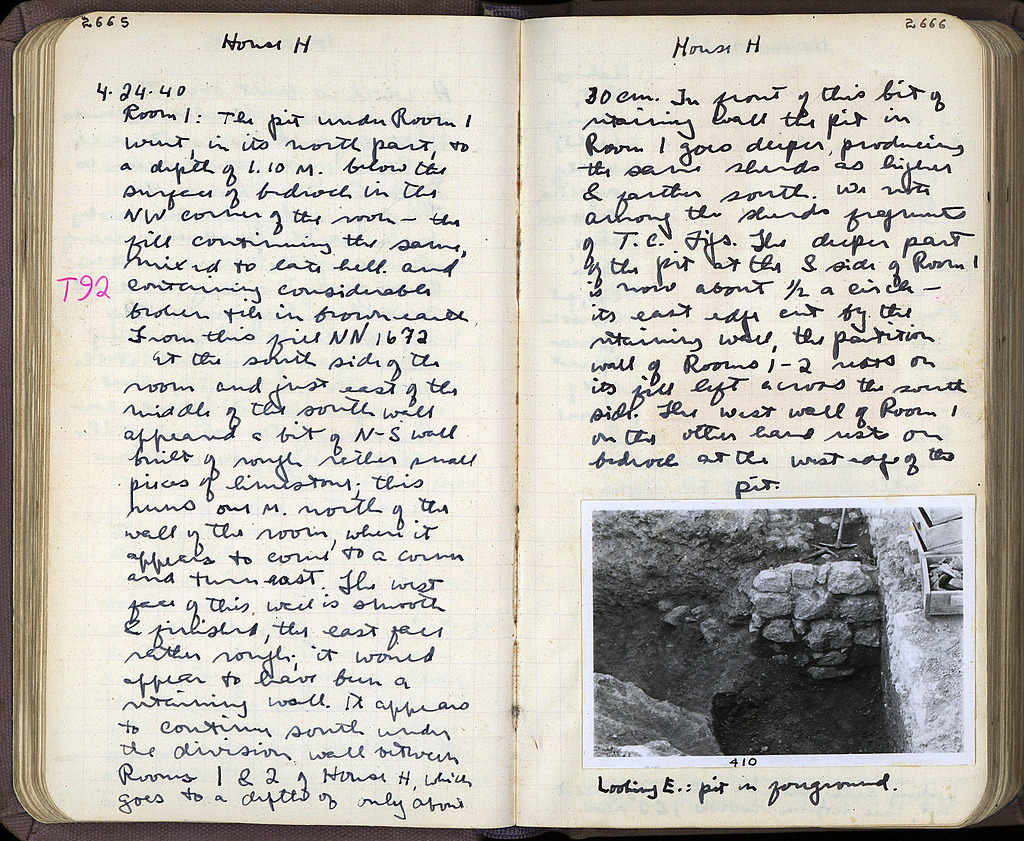 2665
House H
4.24.40
Room 1: The pit under Room 1
went, in its north part, to
a depth of 1.10 M. below the
surface of bedrock in the
NW corner of the room — the
fill continuing the same,
mixed to late hell. and
T92
containing considerable
broken tile in brown earth.
From this fill NN 1672
At the south side of the
room and just east of the
middle of the south wall
appeared a bit of N-S wall
built of rough rather small
pieces of limestone; this
runs one M. north of the
wall of the room, where it
appears to come to a corner
and turn east. The west
face of this wall is smooth
& finished, the east face
rather rough; it would
appear to have been a
retaining wall. It appears
to continue south under
the division wall between
Rooms 1 & 2 of House H, which
goes to a depth of only about
2666
House H
30 cm. In front of this bit of
retaining wall the pit in
Room 1 goes deeper, producing
the same sherds as higher
& farther south. We note
among the sherds fragments
of T.C. figs. The deeper part
of the pit at the S side of Room 1
is now about 1/2 a circle —
its east edge cut by the
retaining wall, the partition
wall of Rooms 1-2 rests on
its fill left across the south
side. The west wall of Room 1
on the other hand rests on
bedrock at the west edge of the
pit.
410
Looking E.: pit in foreground.